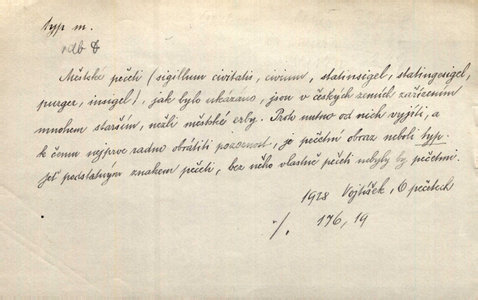 typ m.
rdb
Městské pečeti (sigillum civitatis, civium, statinsigel, statingesigel,
purger, insigel), jak bylo ukázáno, jsou v českých zemích zařízením
mnohem starším, nežli městské erby. Proto nutno od nich vyjíti, a
k čemu nejprve radno obrátiti pozornost, je pečetní obraz neboli typ.
Jeť podstatným znakem pečeti, bez něho vlastně pečeti nebyly by pečetmi.
1928 Vojtíšek, O pečetech
176, 19